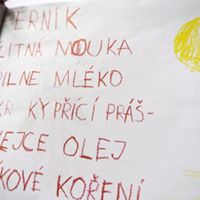 PERNÍK
ŽITNÁ MOUKA
PILNE MLÉKO
KR KYPŘÍCÍ PRÁŠ-
VEJCE OLEJ
ÍKOVÉ KOŘENÍ